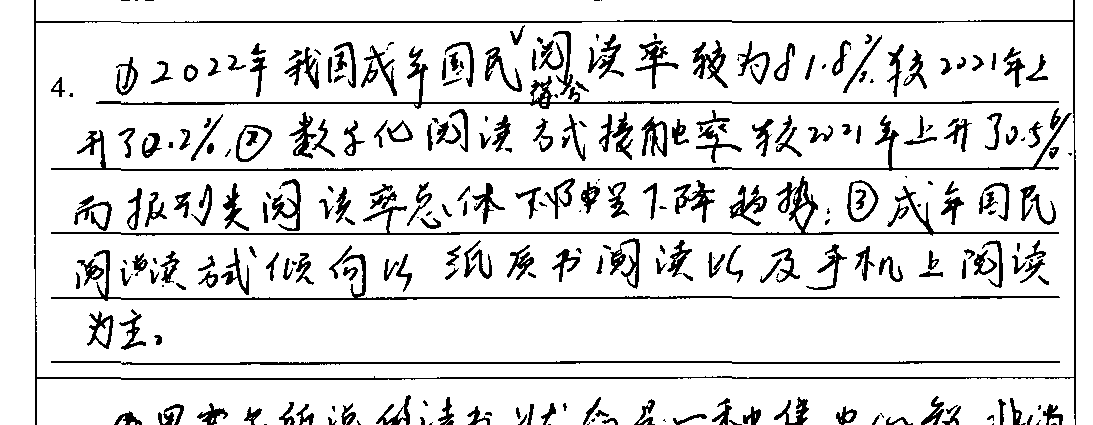 4. ①2022年我国成年国民综合阅读率较为81.8%较2021年上
升了0.2%,②数字化阅读方式接触率较2021年上升了0.5%.
而报刊类阅读率总体呈下降趋势;③成年国民
阅读方式倾向以纸质书阅读以及手机上阅读
为主。